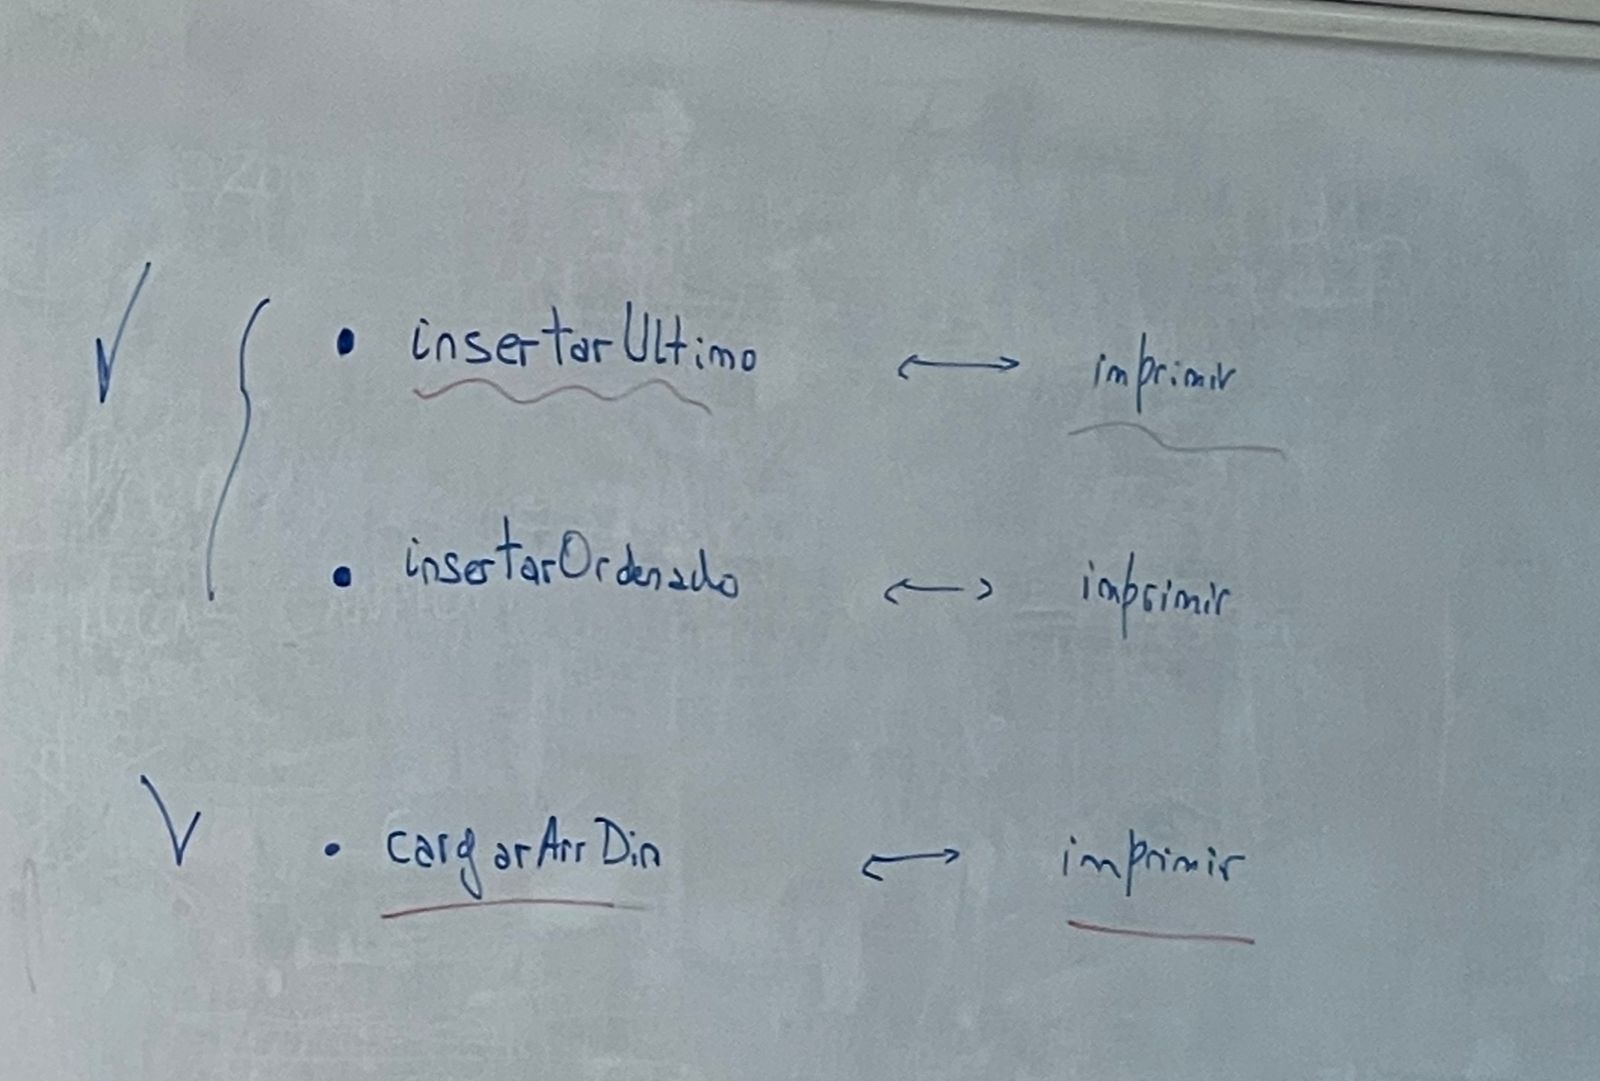 ✓ { • insertarUltimo ↔ imprimir
• insertarOrdenado ↔ imprimir
✓ • cargarArrDin ↔ imprimir